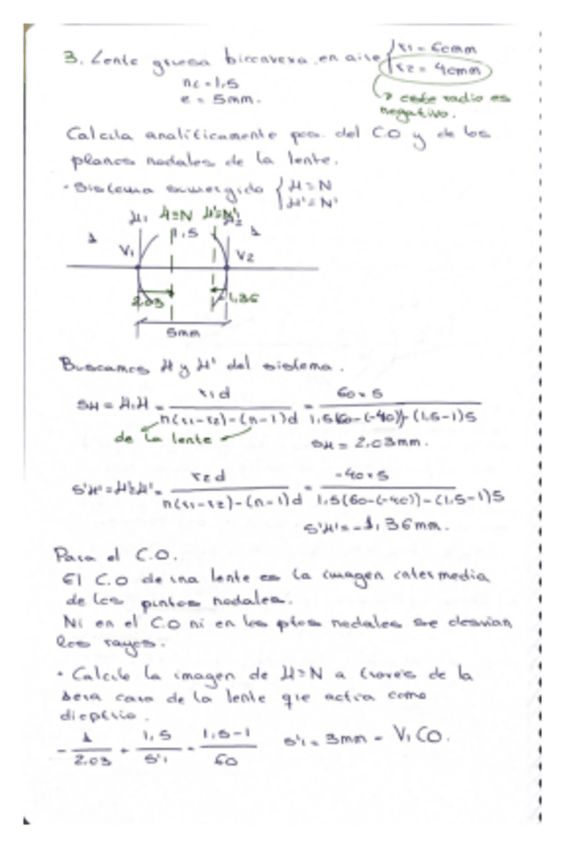 3. Lente gruesa biconvexa en aire { r1 = 60mm
r2 = 40mm
nL = 1,5
e = 5mm.
→ este radio es
negativo.
Calcula analíticamente pos. del C.O y de los
planos nodales de la lente.
· Sistema sumergido { H = N
H' = N'
H1 H=N H'=N' H2
1 V1 1,5 V2 1
2.03 1,36
5mm
Buscamos H y H' del sistema.
SH = H1H = r1 d / n(r1-r2)-(n-1)d = 60×5 / 1,5(60-(-40))-(1,5-1)5
de la lente
SH = 2,03mm.
S'H' = H'2H' = r2 d / n(r1-r2)-(n-1)d = -40×5 / 1,5(60-(-40))-(1,5-1)5
S'H' = -1,36mm.
Para el C.O.
El C.O de una lente es la imagen intermedia
de los puntos nodales.
Ni en el C.O ni en los ptos nodales se desvian
los rayos.
· Calculo la imagen de H=N a través de la
1era cara de la lente que actua como
dioptrio.
- 1 / 2.03 + 1,5 / S'1 = 1,5-1 / 60 S'1 = 3mm = V1CO.